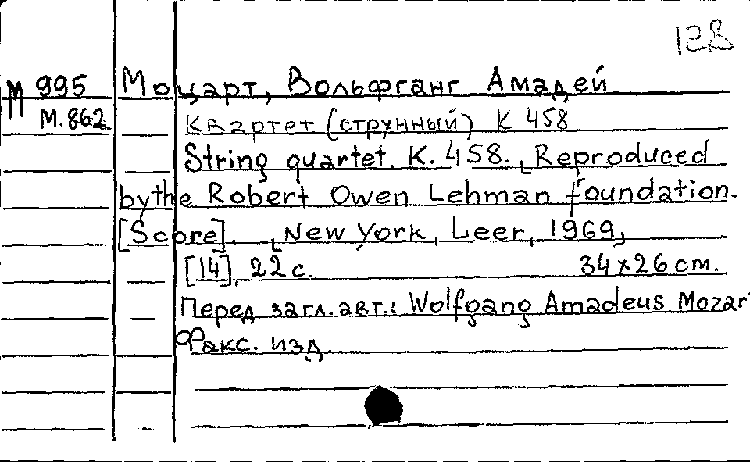 128
М 995 Моцарт, Вольфганг Амадей
М.862 Квартет (струнный) К 458
String quartet. K. 458. Reproduced
by the Robert Owen Lehman foundation.
[Score]. New York, Leer, 1969,
[14], 22 с. 34x26 cm.
Перед загл. авт.: Wolfgang Amadeus Mozar
Факс. изд.